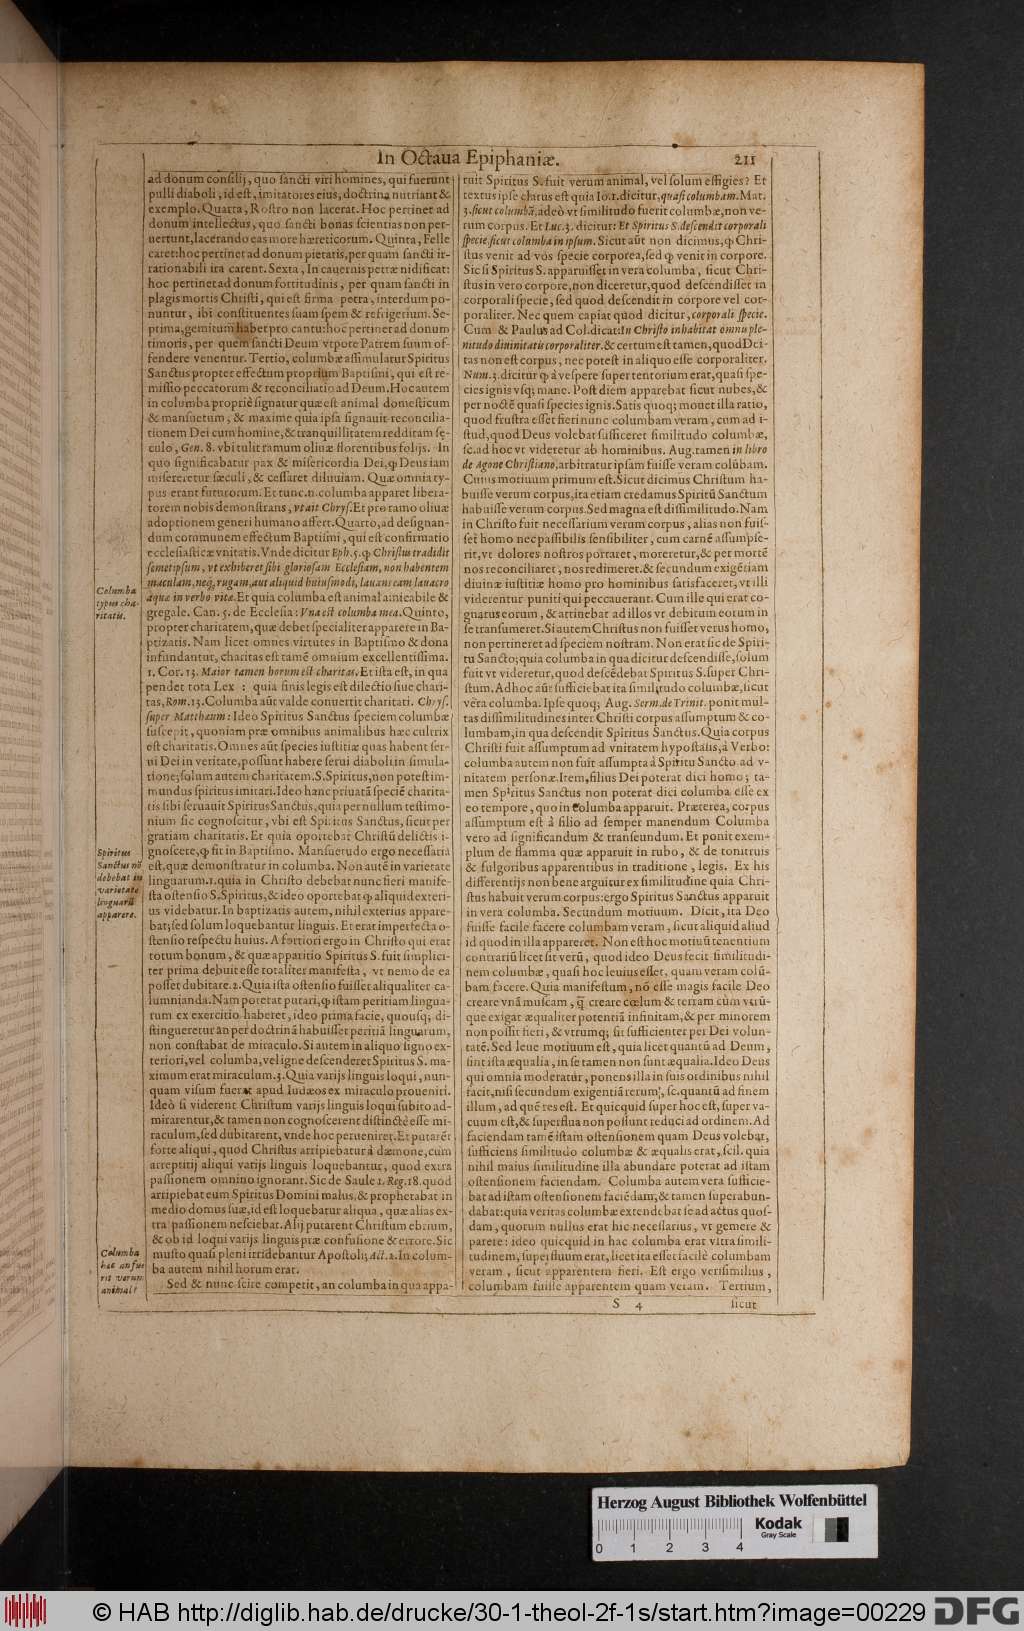 In Octaua Epiphaniæ.
211
ad donum consilij, quo sancti viri homines, qui fuerunt
pulli diaboli, id est, imitatores eius, doctrina nutriant &
exemplo. Quarta, Rostro non lacerat. Hoc pertinet ad
donum intellectus, quo sancti bonas scientias non per-
uertunt, lacerando eas more hæreticorum. Quinta, Felle
caret: hoc pertinet ad donum pietatis, per quam sancti ir-
rationabili ira carent. Sexta, In cauernis petræ nidificat:
hoc pertinet ad donum fortitudinis, per quam sancti in
plagis mortis Christi, qui est firma petra, interdum po-
nuntur, ibi constituentes suam spem & refrigerium. Se-
ptima, gemitum habet pro cantu: hoc pertinet ad donum
timoris, per quem sancti Deum vtpote Patrem suum of-
fendere verentur. Tertio, columbæ assimulatur Spiritus
Sanctus propter effectum proprium Baptismi, qui est re-
missio peccatorum & reconciliatio ad Deum. Hoc autem
in columba propriè signatur quæ est animal domesticum
& mansuetum, & maxime quia ipsa signauit reconcilia-
tionem Dei cum homine, & tranquillitatem redditam sę-
culo, Gen. 8. vbi tulit ramum oliuæ florentibus folijs. In
quo significabatur pax & misericordia Dei, ꝙ Deus iam
misereretur sæculi, & cessaret diluuium. Quæ omnia ty-
pus erant futurorum. Et tunc.n. columba apparet libera-
torem nobis demonstrans, vt ait Chrys. Et pro ramo oliuæ
adoptionem generi humano affert. Quarto, ad designan-
dum communem effectum Baptismi, qui est confirmatio
ecclesiasticæ vnitatis. Vnde dicitur Eph. 5. ꝙ Christus tradidit
semetipsum, vt exhiberet sibi gloriosam Ecclesiam, non habentem
maculam, neq; rugam, aut aliquid huiusmodi, lauans eam lauacro
aquæ in verbo vitæ. Et quia columba est animal amicabile &
gregale. Can. 5. de Ecclesia: Vna est columba mea. Quinto,
propter charitatem, quæ debet specialiter apparere in Ba-
ptizatis. Nam licet omnes virtutes in Baptismo & dona
infundantur, charitas est tamē omnium excellentissima.
1. Cor. 13. Maior tamen horum est charitas. Et ista est, in qua
pendet tota Lex : quia finis legis est dilectio siue chari-
tas, Rom. 13. Columba aūt valde conuertit charitati. Chrys.
super Matthæum: Ideo Spiritus Sanctus speciem columbæ
suscepit, quoniam præ omnibus animalibus hæc cultrix
est charitatis. Omnes aūt species iustitiæ quas habent ser-
ui Dei in veritate, possunt habere serui diaboli in simula-
tione; solum autem charitatem. S. Spiritus, non potest im-
mundus spiritus imitari. Ideo hanc priuatā speciē charita-
tis sibi seruauit Spiritus Sanctus, quia per nullum testimo-
nium sic cognoscitur, vbi est Spiritus Sanctus, sicut per
gratiam charitatis. Et quia oportebat Christū delictis i-
gnoscere, ꝙ fit in Baptismo. Mansuetudo ergo necessaria
est, quæ demonstratur in columba. Non autē in varietate
linguarum. 1. quia in Christo debebat nunc fieri manife-
sta ostensio S. Spiritus, & ideo oportebat ꝙ aliquid exteri-
us videbatur. In baptizatis autem, nihil exterius appare-
bat; sed solum loquebantur linguis. Et erat imperfecta o-
stensio respectu huius. A fortiori ergo in Christo qui erat
totum bonum, & quæ apparitio Spiritus S. fuit simplici-
ter prima debuit esse totaliter manifesta, vt nemo de ea
posset dubitare. 2. Quia ista ostensio fuisset aliqualiter ca-
lumnianda. Nam poterat putari, ꝙ istam peritiam lingua-
rum ex exercitio haberet, ideo prima facie, quousq; di-
stingueretur an per doctrinā habuisset peritiā linguarum,
non constabat de miraculo. Si autem in aliquo signo ex-
teriori, vel columba, vel igne descenderet Spiritus S. ma-
ximum erat miraculum. 3. Quia varijs linguis loqui, nun-
quam visum fuerat apud Iudæos ex miraculo proueniri.
Ideò si viderent Christum varijs linguis loqui subito ad-
mirarentur, & tamen non cognoscerent distinctè esse mi-
raculum, sed dubitarent, vnde hoc perueniret. Et putarēt
forte aliqui, quod Christus arripiebatur à dæmone, cum
arreptitij aliqui varijs linguis loquebantur, quod extra
passionem omnino ignorant. Sic de Saule 1. Reg. 18. quod
arripiebat eum Spiritus Domini malus, & prophetabat in
medio domus suæ, id est loquebatur aliqua, quæ alias ex-
tra passionem nesciebat. Alij putarent Christum ebrium,
& ob id loqui varijs linguis præ confusione & errore. Sic
musto quasi pleni irridebantur Apostoli; Act. 2. In colum-
ba autem nihil horum erat.
Sed & nunc scire competit, an columba in qua appa-
Columba
typus cha-
ritatis.
Spiritus
Sanctus nō
debebat in
varietate
linguarū
apparere.
Columba
hæc an fue
rit verum
animal?
ruit Spiritus S. fuit verum animal, vel solum effigies? Et
textus ipse clarus est quia Io. 1. dicitur, quasi columbam. Mat.
3. sicut columbā, adeò vt similitudo fuerit columbæ, non ve-
rum corpus. Et Luc. 3. dicitur: Et Spiritus S. descendit corporali
specie sicut columba in ipsum. Sicut aūt non dicimus, ꝙ Chri-
stus venit ad vos specie corporea, sed ꝙ venit in corpore.
Sic si Spiritus S. apparuisset in vera columba, sicut Chri-
stus in vero corpore, non diceretur, quod descendisset in
corporali specie, sed quod descendit in corpore vel cor-
poraliter. Nec quem capiat quod dicitur, corporali specie.
Cum & Paulus ad Col. dicat: In Christo inhabitat omnis ple-
nitudo diuinitatis corporaliter. & certum est tamen, quod Dei-
tas non est corpus, nec potest in aliquo esse corporaliter.
Num. 3. dicitur ꝙ à vespere super tentorium erat, quasi spe-
cies ignis vsq; mane. Post diem apparebat sicut nubes, &
per noctē quasi species ignis. Satis quoq; mouet illa ratio,
quod frustra esset fieri nunc columbam veram, cum ad i-
stud, quod Deus volebat sufficeret similitudo columbæ,
sc. ad hoc vt videretur ab hominibus. Aug. tamen in libro
de Agone Christiano, arbitratur ipsam fuisse veram colūbam.
Cuius motiuum primum est. Sicut dicimus Christum ha-
buisse verum corpus, ita etiam credamus Spiritū Sanctum
habuisse verum corpus. Sed magna est dissimilitudo. Nam
in Christo fuit necessarium verum corpus, alias non fuis-
set homo nec passibilis sensibiliter, cum carnē assumpse-
rit, vt dolores nostros portaret, moreretur, & per mortē
nos reconciliaret, nos redimeret. & secundum exigētiam
diuinæ iustitiæ homo pro hominibus satisfaceret, vt illi
viderentur puniti qui peccauerant. Cum ille qui erat co-
gnatus eorum, & attinebat ad illos vt debitum eorum in
se transumeret. Si autem Christus non fuisset verus homo,
non pertineret ad speciem nostram. Non erat sic de Spiri-
tu Sancto; quia columba in qua dicitur descendisse, solum
fuit vt videretur, quod descēdebat Spiritus S. super Chri-
stum. Ad hoc aūt sufficiebat ita similitudo columbæ, sicut
vera columba. Ipse quoq; Aug. Serm. de Trinit. ponit mul-
tas dissimilitudines inter Christi corpus assumptum & co-
lumbam, in qua descendit Spiritus Sanctus. Quia corpus
Christi fuit assumptum ad vnitatem hypostasis, à Verbo:
columba autem non fuit assumpta à Spiritu Sancto ad v-
nitatem personæ. Item, filius Dei poterat dici homo; ta-
men Spiritus Sanctus non poterat dici columba esse ex
eo tempore, quo in columba apparuit. Præterea, corpus
assumptum est à filio ad semper manendum Columba
vero ad significandum & transeundum. Et ponit exem-
plum de flamma quæ apparuit in rubo, & de tonitruis
& fulgoribus apparentibus in traditione, legis. Ex his
differentijs non bene arguitur ex similitudine quia Chri-
stus habuit verum corpus: ergo Spiritus Sanctus apparuit
in vera columba. Secundum motiuum. Dicit, ita Deo
fuisse facile facere columbam veram, sicut aliquid aliud
id quod in illa appareret. Non est hoc motiuū tenentium
contrariū licet sit verū, quod ideo Deus fecit similitudi-
nem columbæ, quasi hoc leuius esset, quam veram colū-
bam facere. Quia manifestum, nō esse magis facile Deo
creare vnā muscam, q̄ creare cœlum & terram cùm vtrū-
que exigat æqualiter potentiā infinitam, & per minorem
non possit fieri, & vtrumq; sit sufficienter per Dei volun-
tatē. Sed leue motiuum est, quia licet quantū ad Deum,
sint ista æqualia, in se tamen non sunt æqualia. Ideo Deus
qui omnia moderatur, ponens illa in suis ordinibus nihil
facit, nisi secundum exigentiā rerum, sc. quantū ad finem
illum, ad quē res est. Et quicquid super hoc est, super va-
cuum est, & superflua non possunt reduci ad ordinem. Ad
faciendam tamē istam ostensionem quam Deus volebat,
sufficiens similitudo columbæ & æqualis erat, scil. quia
nihil maius similitudine illa abundare poterat ad istam
ostensionem faciendam. Columba autem vera sufficie-
bat ad istam ostensionem faciēdam, & tamen superabun-
dabat: quia veritas columbæ extendebat se ad actus quos-
dam, quorum nullus erat hic necessarius, vt gemere &
parere: ideo quicquid in hac columba erat vltra simili-
tudinem, superfluum erat, licet ita esset facilè columbam
veram, sicut apparentem fieri. Est ergo verisimilius,
columbam fuisse apparentem quam veram. Tertium,
S 4
sicut
Herzog August Bibliothek Wolfenbüttel
Kodak
Gray Scale
0 1 2 3 4
© HAB http://diglib.hab.de/drucke/30-1-theol-2f-1s/start.htm?image=00229
DFG